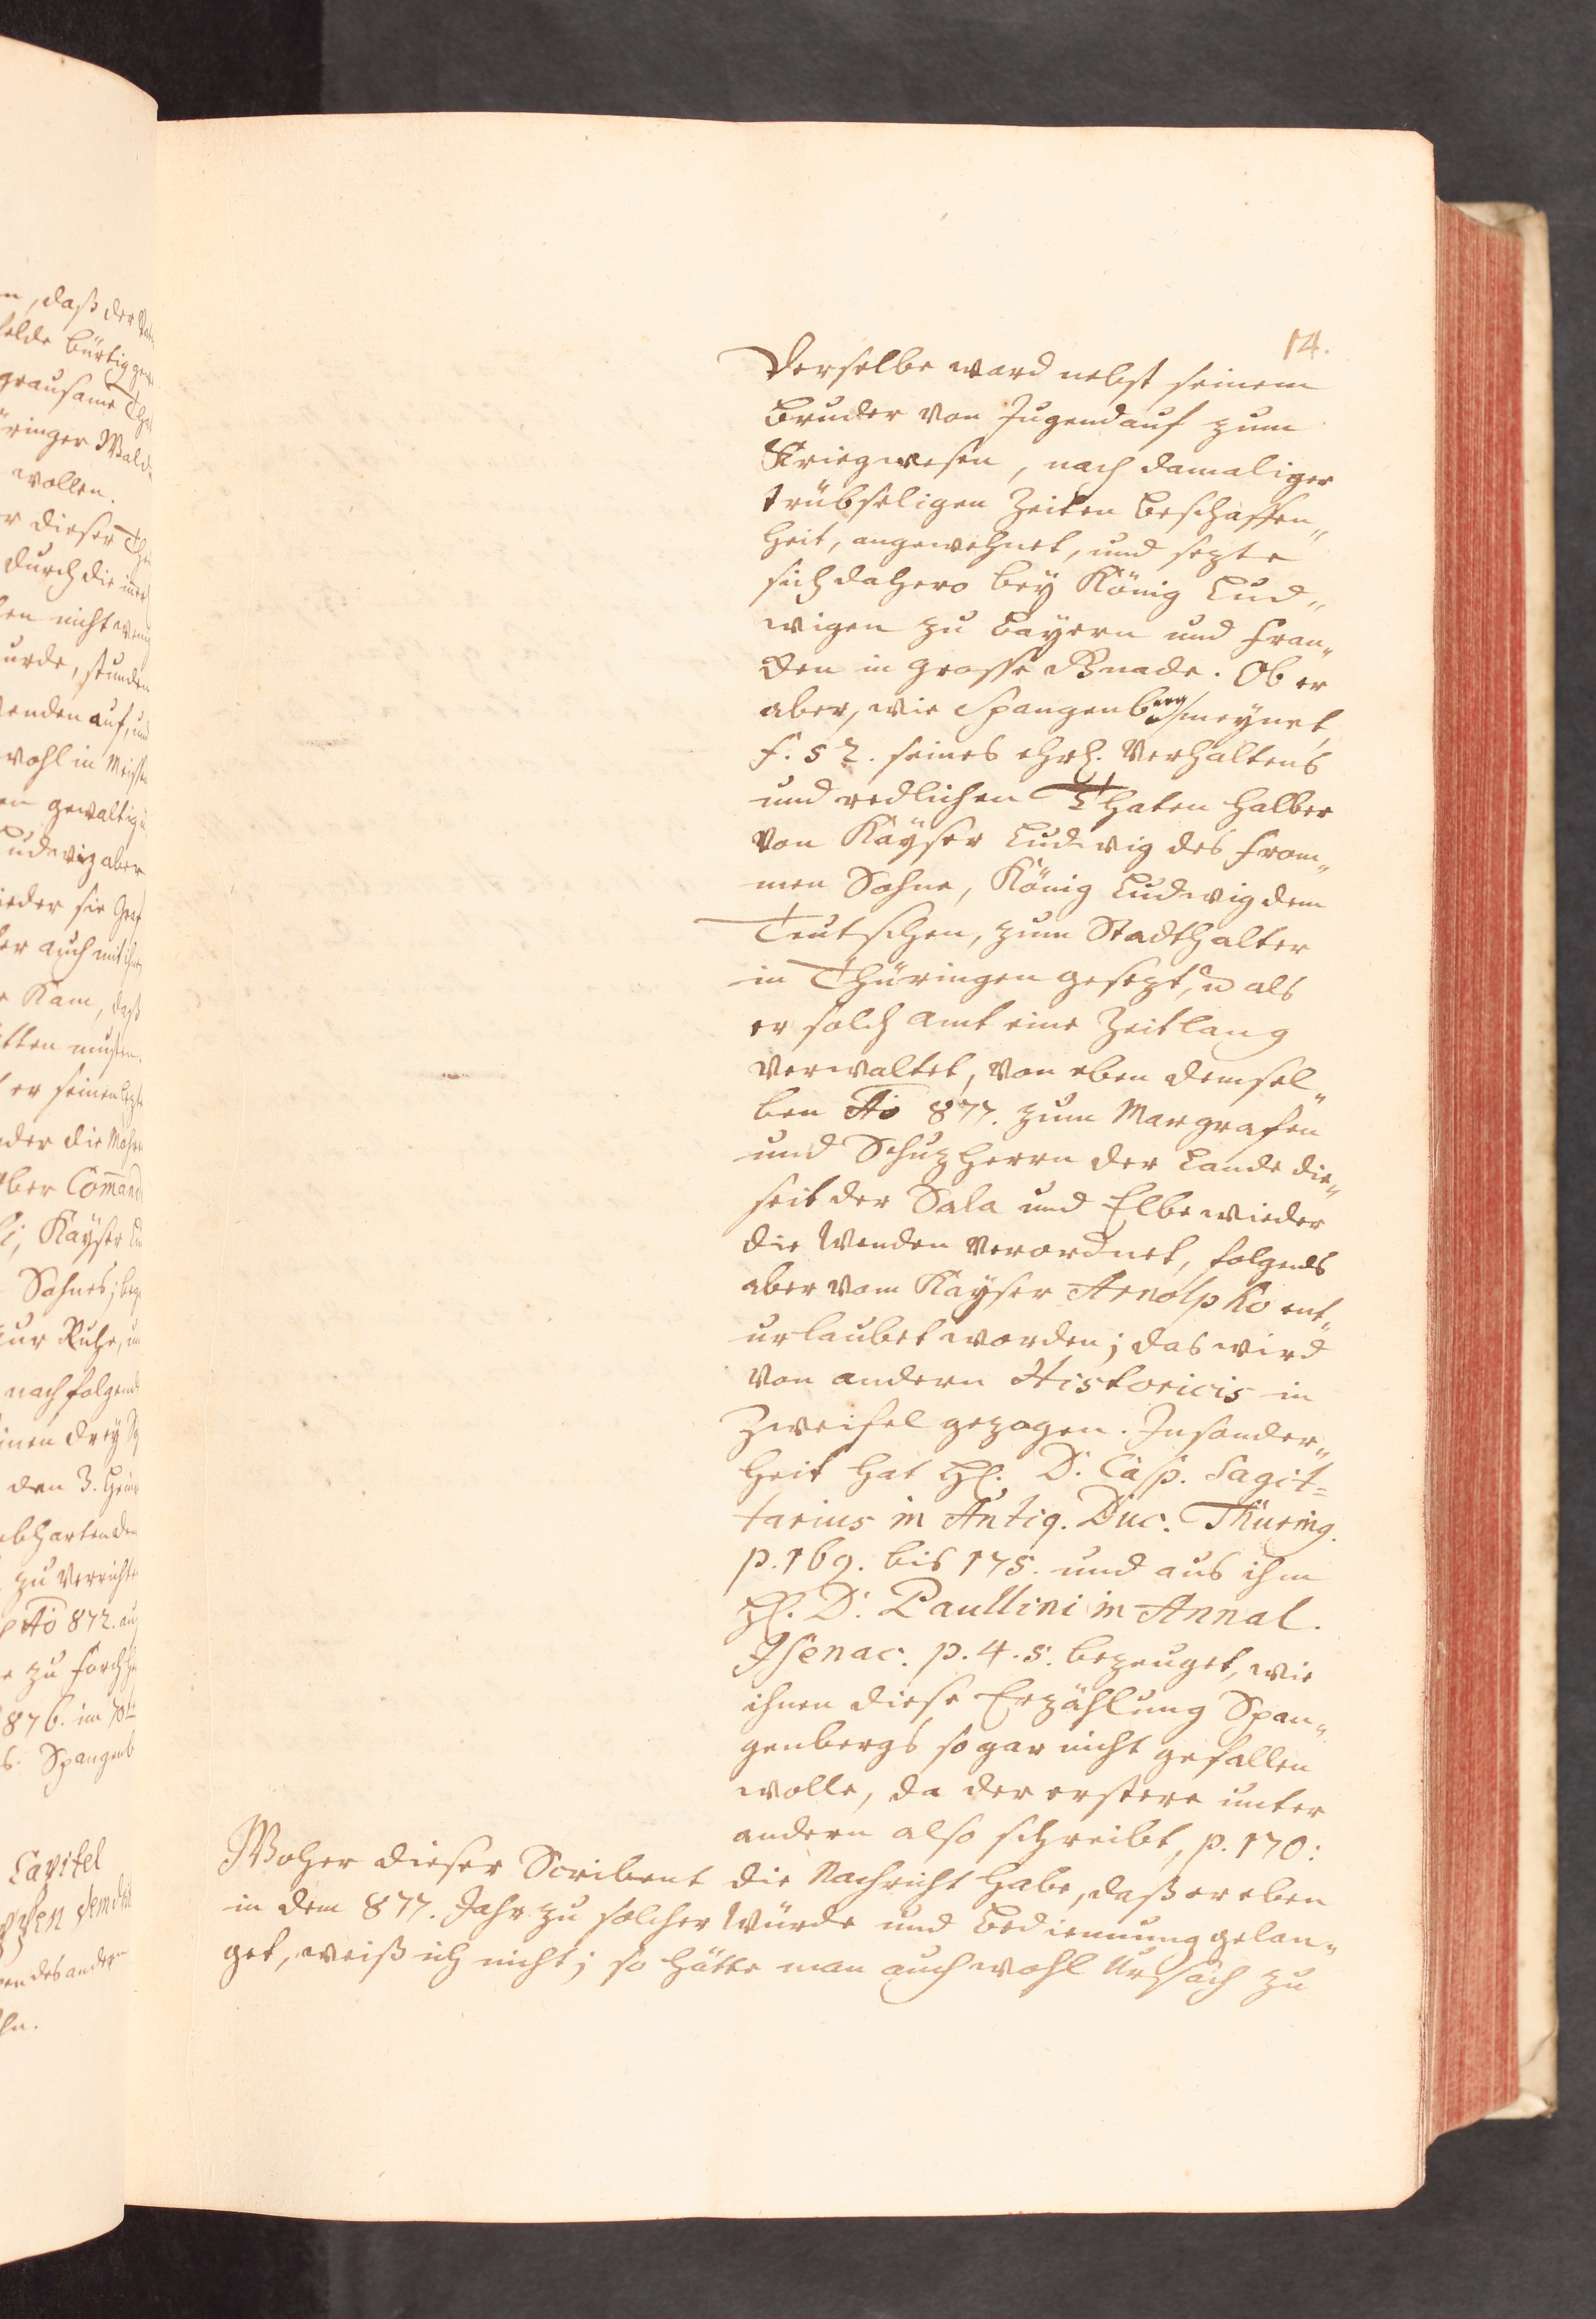 14.
Derselbe ward nebst seinem
Bruder von Jugend auf zum
Kriegwesen, nach damaliger
trübseligen Zeiten Beschaffen„
heit, angewehnet, und sezte
sich dahero bey König Lud„
wigen zu Bayern und Fran„
cken in grosse Gnade. Ob er
aber, wie Spangenberg meynet,
f. 52. seines ehrl. Verhaltens
und redlichen Thaten halber
von Kayser Ludwig des From„
men Sohne, König Ludwig dem
Teutschen, zum Stadthalter
in Thüringen gesezt, u als
er solch Amt eine Zeitlang
verwaltet, von eben demsel„
ben Ao 877. zum Margrafen
und Schuzherrn der Lande die„
seit der Sala und Elbe wieder
die Wenden verordnet, folgends
aber vom Kayser Arnolpho ent„
urlaubet worden; das wird
von andern Historicis in
Zweifel gezogen. Insonder„
heit hat H. D. Casp. Sagit=
tarius in Antiq. Duc. Thuring.
p. 169. bis 175. und aus ihm
H. D. Paullini in Annal.
Isenac. p. 4. 5. bezeuget, wie
ihnen diese Erzählung Span„
genbergs so gar nicht gefallen
wolle, da der erstere unter
andern also schreibt, p. 170:
Woher dieser Scribent die Nachricht habe, daß er eben
in dem 877. Jahr zu solcher Würde und Bedienung gelan„
get, weiß ich nicht; so hätte man auch wohl Ursach zu